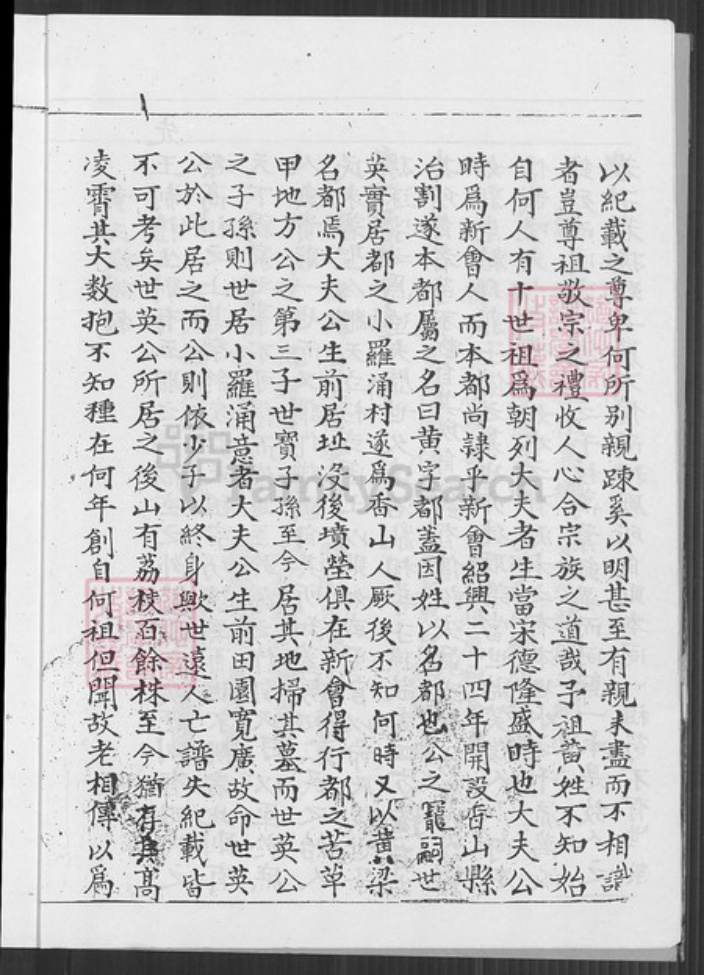 以紀載之尊卑何所別親踈奚以明甚至有親未盡而不相識
者豈尊祖敬宗之禮收人心合宗族之道哉予祖黄姓不知始
自何人有十世祖爲朝列大夫者生當宋德隆盛時也大夫公
時爲新會人而本都尚隸乎新會紹興二十四年開設香山縣
治割遂本都屬之名曰黄字都盖因姓以名都也公之寵嗣世
英實居都之小羅涌村遂爲香山人厥後不知何時又以黄梁
名都焉大夫公生前居址没後墳塋俱在新會得行都之苦草
甲地方公之第三子世寳子孫至今居其地掃其墓而世英公
之子孫則世居小羅涌意者大夫公生前田園寛廣故命世英
公於此居之而公則依少子以終身歟世遠人亡譜失紀載皆
不可考矣世英公所居之後山有荔枝百餘株至今猶有其髙
凌霄其大数抱不知種在何年創自何祖但聞故老相傳以爲
FamilySearch